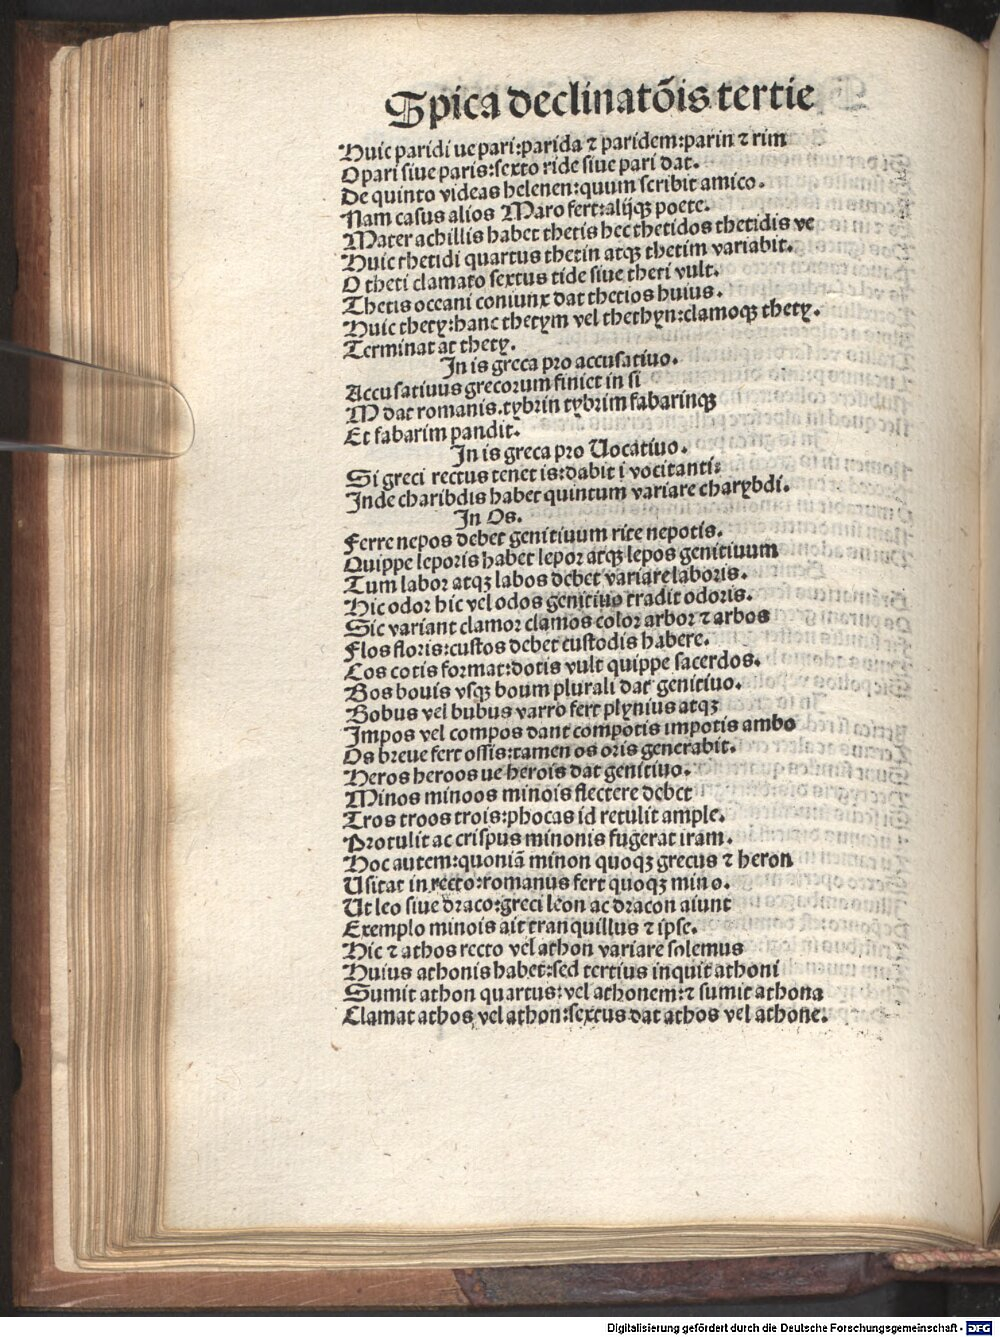 Spica declinatõis tertie
Huic paridi ue pari:parida ⁊ paridem:parin ⁊ rim
O pari siue paris:sexto ride siue pari dat.
De quinto videas helenen:quum scribit amico.
Nam casus alios Maro fert:alijqꝫ poete.
Mater achillis habet thetis hec thetidos thetidis ve
Huic thetidi quartus thetin atqꝫ thetim variabit.
O theti clamato sextus tide siue theti vult.
Thetis oceani coniunx dat thetios huius.
Huic thety:hanc thetym vel thethyn:clamoqꝫ thety.
Terminat at thety.
In is greca pro accusatiuo.
Accusatiuus grecorum finiet in si
M dat romanis.tybrin tybrim fabarinqꝫ
Et fabarim pandit.
In is greca pro Uocatiuo.
Si greci rectus tenet is:dabit i vocitanti:
Inde charibdis habet quintum variare charybdi.
In Os.
Ferre nepos debet genitiuum rite nepotis.
Quippe leporis habet lepor atqꝫ lepos genitiuum
Tum labor atqꝫ labos debet variare laboris.
Hic odor hic vel odos genitiuo tradit odoris.
Sic variant clamor clamos color arbor ⁊ arbos
Flos floris:custos debet custodis habere.
Cos cotis format:dotis vult quippe sacerdos.
Bos bouis vsqꝫ boum plurali dat genitiuo.
Bobus vel bubus varro fert plynius atqꝫ
Impos vel compos dant compotis impotis ambo
Os breue fert ossis:tamen os oris generabit.
Heros heroos ue herois dat genitiuo.
Minos minoos minois flectere debet
Tros troos trois:phocas id retulit ample.
Protulit ac crispus minonis fugerat iram.
Hoc autem:quoniã minon quoqꝫ grecus ⁊ heron
Usitat in recto:romanus fert quoqꝫ mino.
Ut leo siue draco:greci leon ac dracon aiunt
Exemplo minois ait tranquillus ⁊ ipse.
Hic ⁊ athos recto vel athon variare solemus
Huius athonis habet:sed tertius inquit athoni
Sumit athon quartus:vel athonem:⁊ sumit athona
Clamat athos vel athon:sextus dat athos vel athone.
Digitalisierung gefördert durch die Deutsche Forschungsgemeinschaft - DFG